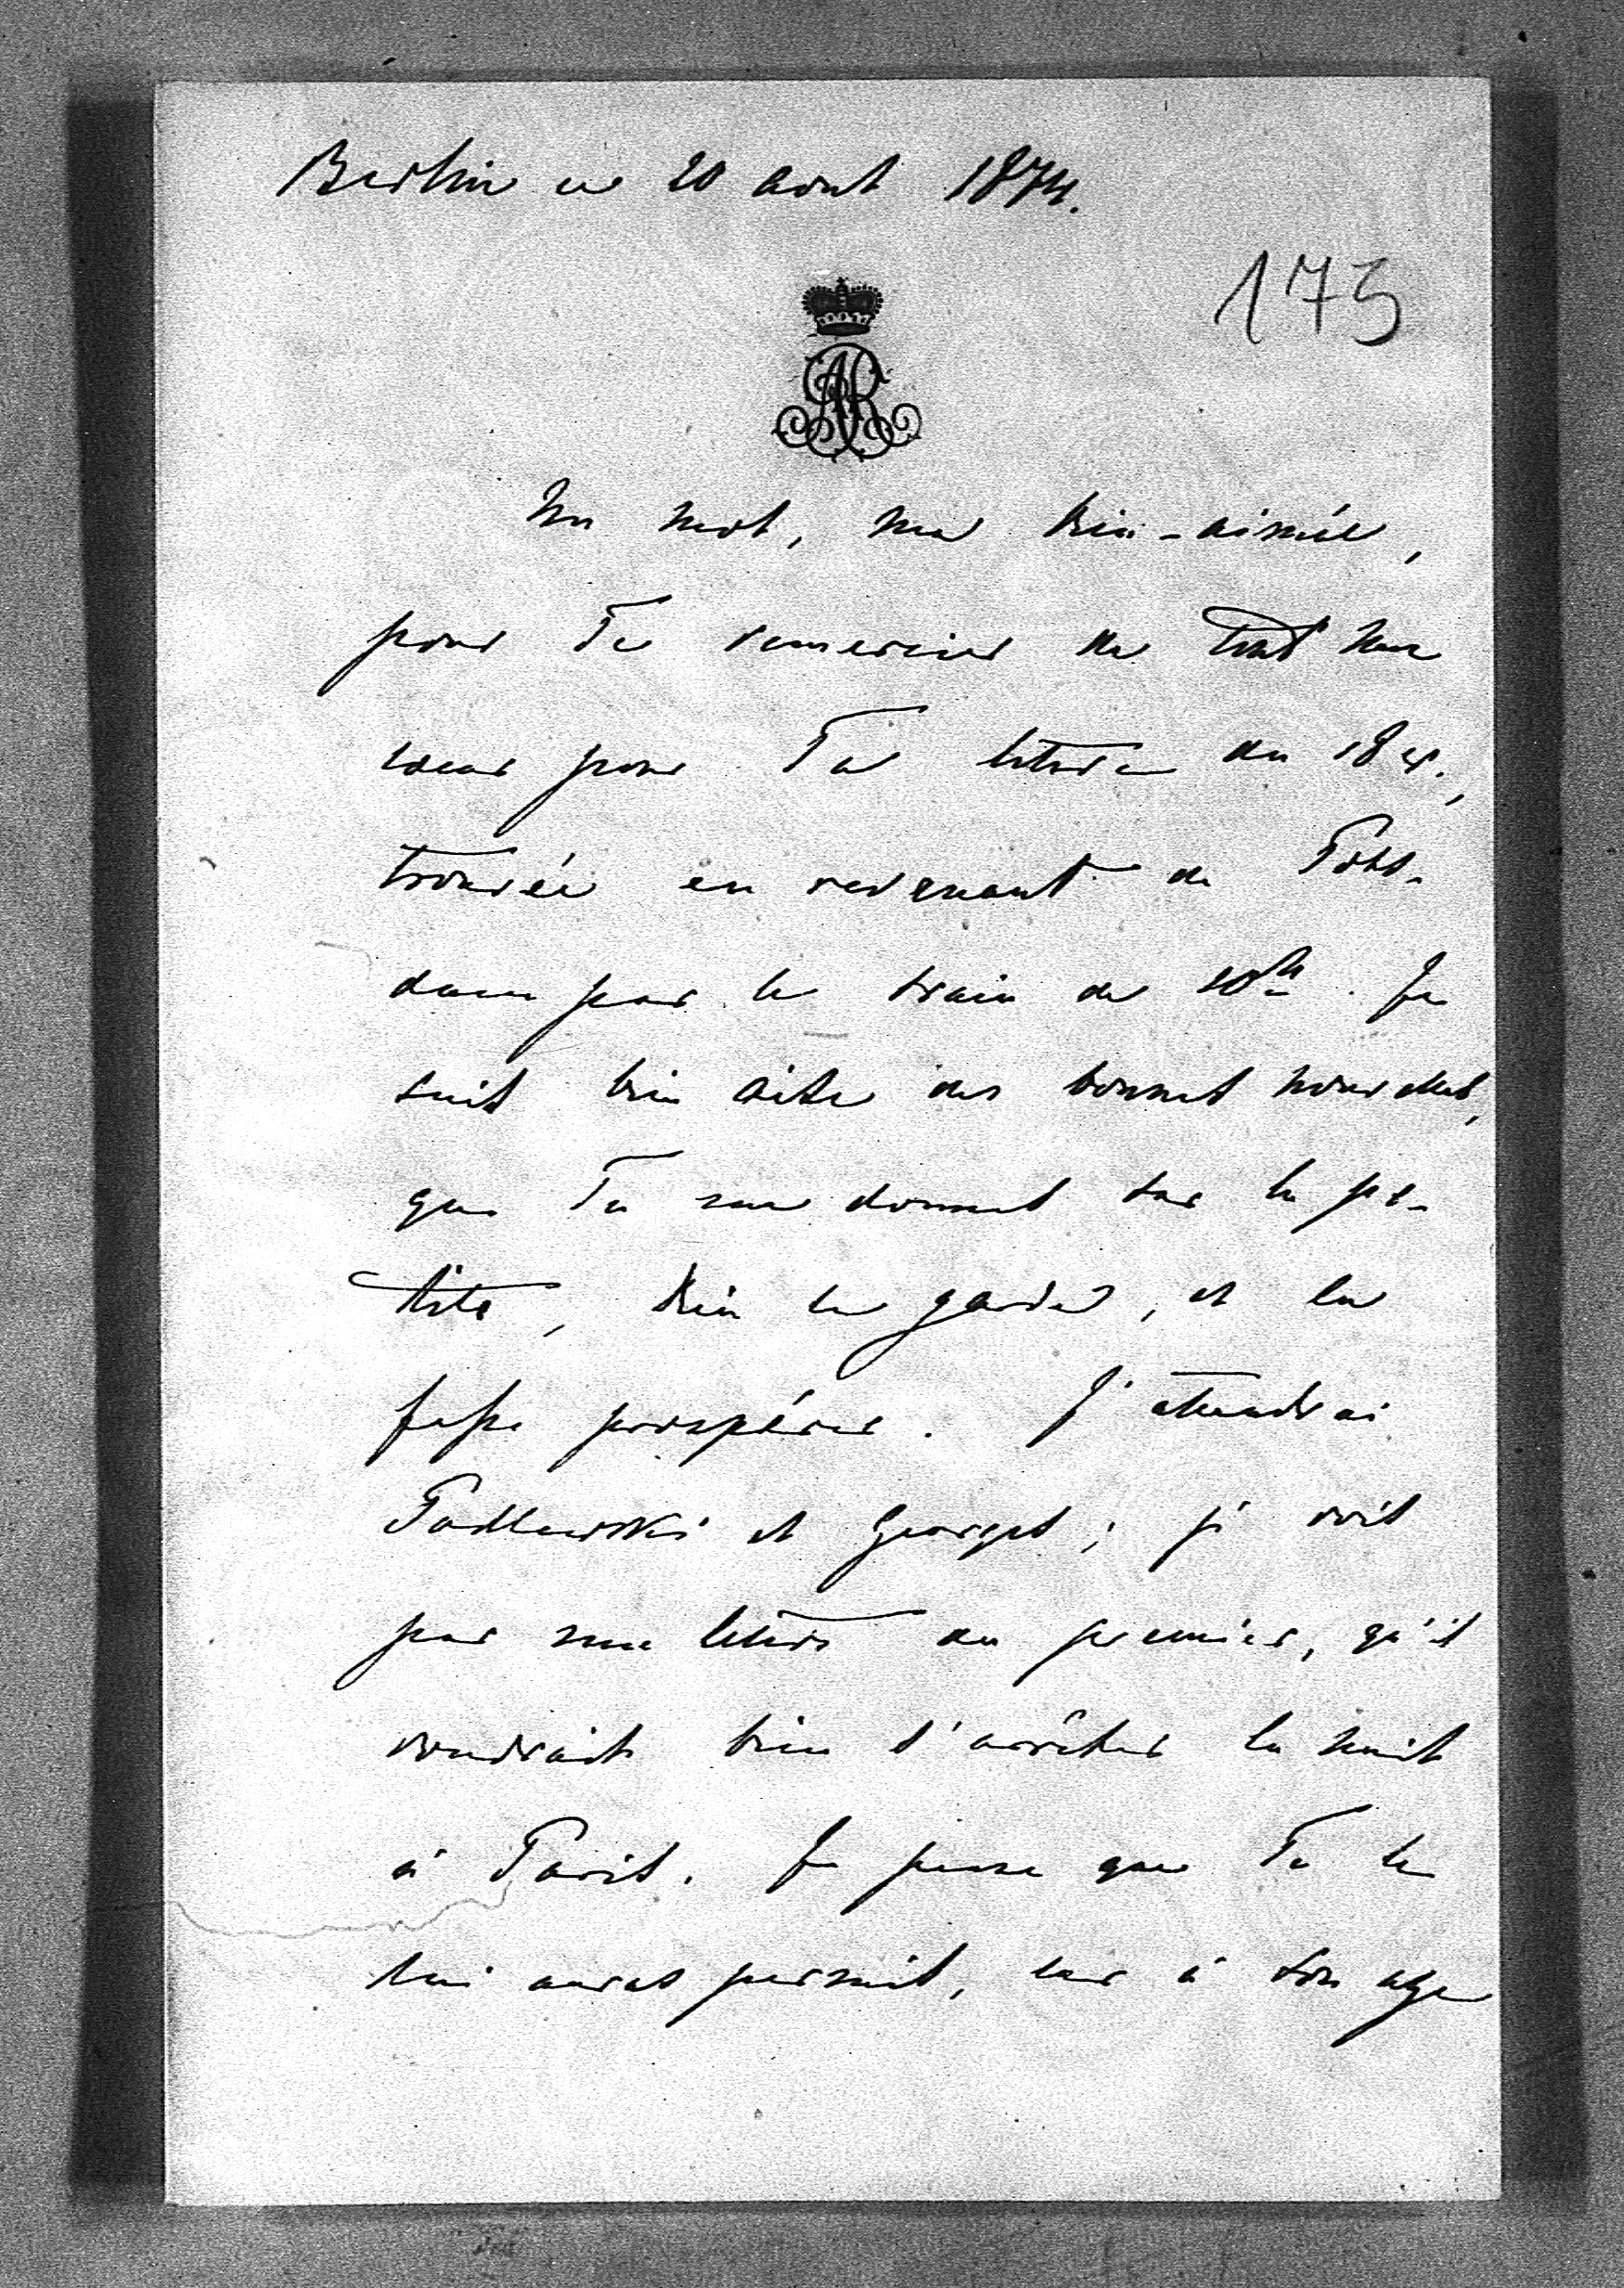 Berlin ce 20 aout 1874.
175
AR
Un mot, ma bien-aimée,
pour Te remercier de tout mon
coeur pour Ta lettre du 18 ct.,
trouvée en revenant de Pots-
dam par le train de 10h. Je
suis bien aise des bonnes nouvelles,
que Tu me donnes sur la pe-
tite, Dieu la garde, et la
fasse prospérer. J'attendrai
Podlewski et Georges; je vois
par une lettre du premier, qu'il
voudrait bien s'arrêter la nuit
à Paris. Je pense que Tu le
lui auras permis, car à son age